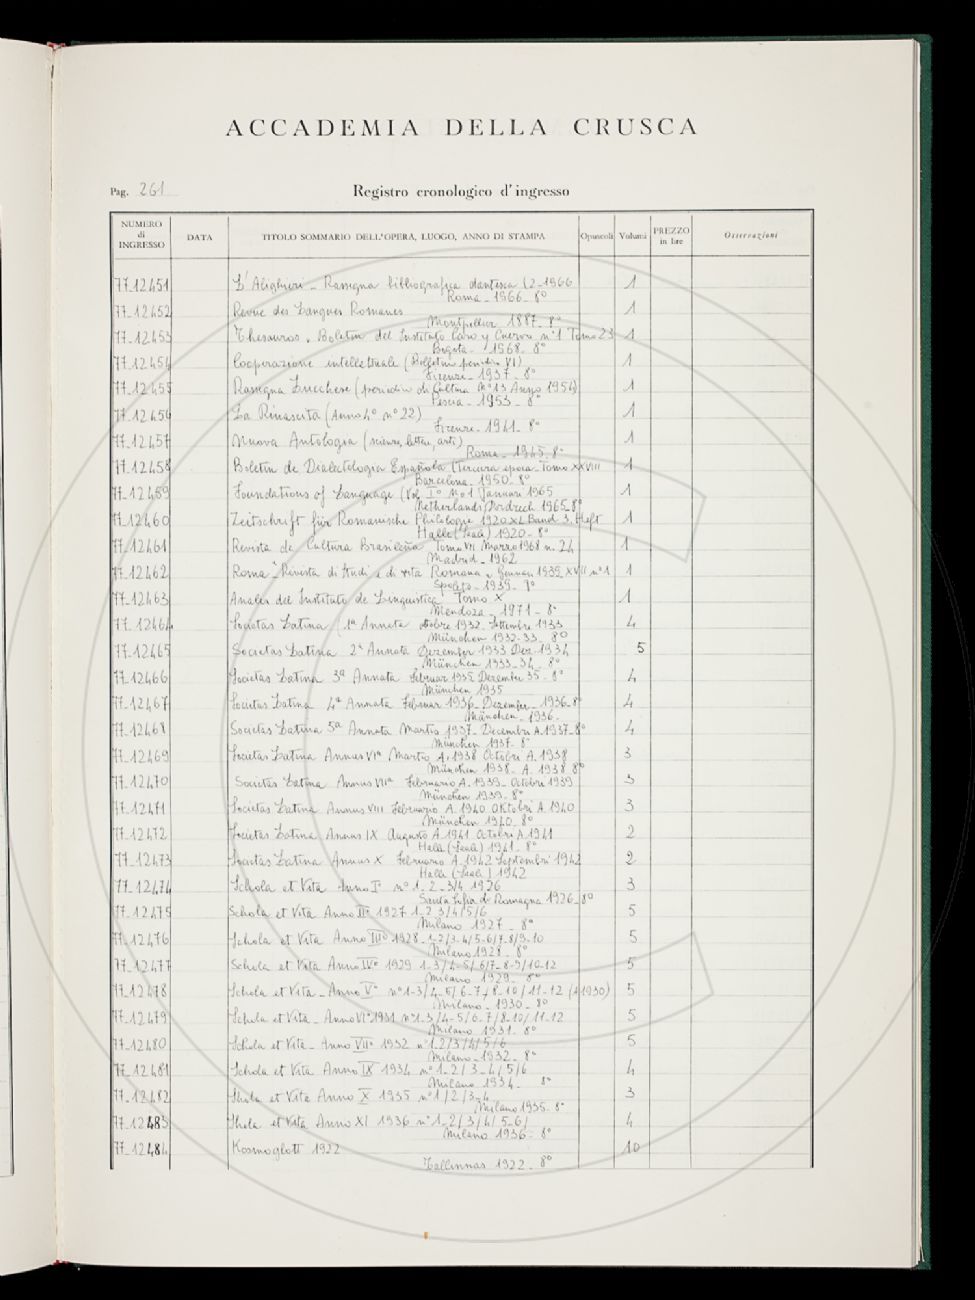 ACCADEMIA DELLA CRUSCA
Pag. 261
Registro cronologico d'ingresso
NUMERO di INGRESSO DATA TITOLO SOMMARIO DELL'OPERA, LUOGO, ANNO DI STAMPA Opuscoli Volumi PREZZO in lire Osservazioni
77-12451 L'Alighieri - Rassegna bibliografica dantesca (2-1966 1
Roma - 1966 - 8°
77-12452 Revue des Langues Romanes 1
Montpellier 1887 - 8°
77-12453 Thesaurus. Boletin del Instituto Caro y Cuervo n°1 Tomo 23 1
Bogota - 1968 - 8°
77-12454 Cooperazione intellettuale (Bollettino periodico VI) 1
Firenze - 1937 - 8°
77-12455 Rassegna Lucchese (periodico di Cultura N°13 1954) 1
Pescia - 1953 - 8°
77-12456 La Rinascita (Anno 4° n°22) 1
Firenze - 1941 - 8°
77-12457 Nuova Antologia (scienze, lettere, arti) 1
Roma - 1945 - 8°
77-12458 Boletin de Dialectologia Española (Tercera epoca - Tomo XXVIII 1
Barcelona - 1950 - 8°
77-12459 Foundations of Language (Vol. I° N°1 Januari 1965 1
Netherlands, Dordrech 1965 - 8°
77-12460 Zeitschrift für Romanische Philologie 1920 XL Band 3. Heft 1
Halle (Saale) 1920 - 8°
77-12461 Revista de Cultura Brasileña Tomo VII Marzo 1968 n. 24 1
Madrid - 1962
77-12462 Roma "Rivista di studi e di vita Romana" Gennaio 1939 XVII n°1 1
Spoleto - 1939 - 8°
77-12463 Anales del Instituto de Linguistica Tomo X 1
Mendoza - 1971 - 8°
77-12464 Societas Latina (1ª Annata Ottobre 1932 - Settembre 1933 4
München 1932-33 - 8°
77-12465 Societas Latina 2ª Annata Dezember 1933 Dez - 1934 5
München 1933-34 - 8°
77-12466 Societas Latina 3ª Annata Februar 1935 Dezember 35 - 8° 4
München 1935
77-12467 Societas Latina 4ª Annata Februar 1936 - Dezember - 1936 - 8° 4
München - 1936 -
77-12468 Societas Latina 5ª Annata Martio 1937 - Decembri A. 1937 - 8° 4
München 1937 - 8°
77-12469 Societas Latina Annus VIª Martio A. 1938 Octobri A. 1938 3
München 1938 - A. 1938 8°
77-12470 Societas Latina Annus VIIª Februario A. 1939 - Octobri 1939 3
München 1939 - 8°
77-12471 Societas Latina Annus VIII Februario A. 1940 Oktobri A. 1940 3
München 1940 - 8°
77-12472 Societas Latina Annus IX Augusto A. 1941 Octobri A. 1941 2
Halle (Saale) 1941 - 8°
77-12473 Societas Latina Annus X Februario A. 1942 Septembri 1942 2
Halle (Saale) 1942
77-12474 Schola et Vita Anno I° n° 1-2-3/4 1926 3
Santa Sofia di Romagna 1926 - 8°
77-12475 Schola et Vita Anno II° 1927 1-2 3/4/5/6 5
Milano 1927 - 8°
77-12476 Schola et Vita Anno III° 1928 - 1-2/3-4/5-6/7-8/9-10 5
Milano 1928 - 8°
77-12477 Schola et Vita Anno IV° 1929 1-3/4-5/6/7-8-9/10-12 5
Milano 1929 - 8°
77-12478 Schola et Vita - Anno V° n°1-3/4-5/6-7/8-10/11-12 (A1930) 5
Milano - 1930 - 8°
77-12479 Schola et Vita - Anno VI° 1931 n°1-3/4-5/6-7/8-10/11-12 5
Milano 1931 - 8°
77-12480 Schola et Vita - Anno VII° 1932 n°1-2/3/4/5/6 5
Milano - 1932 - 8°
77-12481 Schola et Vita Anno IX 1934 n°1-2/3-4/5/6 4
Milano 1934 - 8°
77-12482 Shola et Vita Anno X 1935 n°1/2/3-4 3
Milano 1935 - 8°
77-12483 Shola et Vita Anno XI 1936 n°1-2/3/4/5-6/ 4
Milano 1936 - 8°
77-12484 Kosmoglott 1922 10
Tallinnas 1922 - 8°